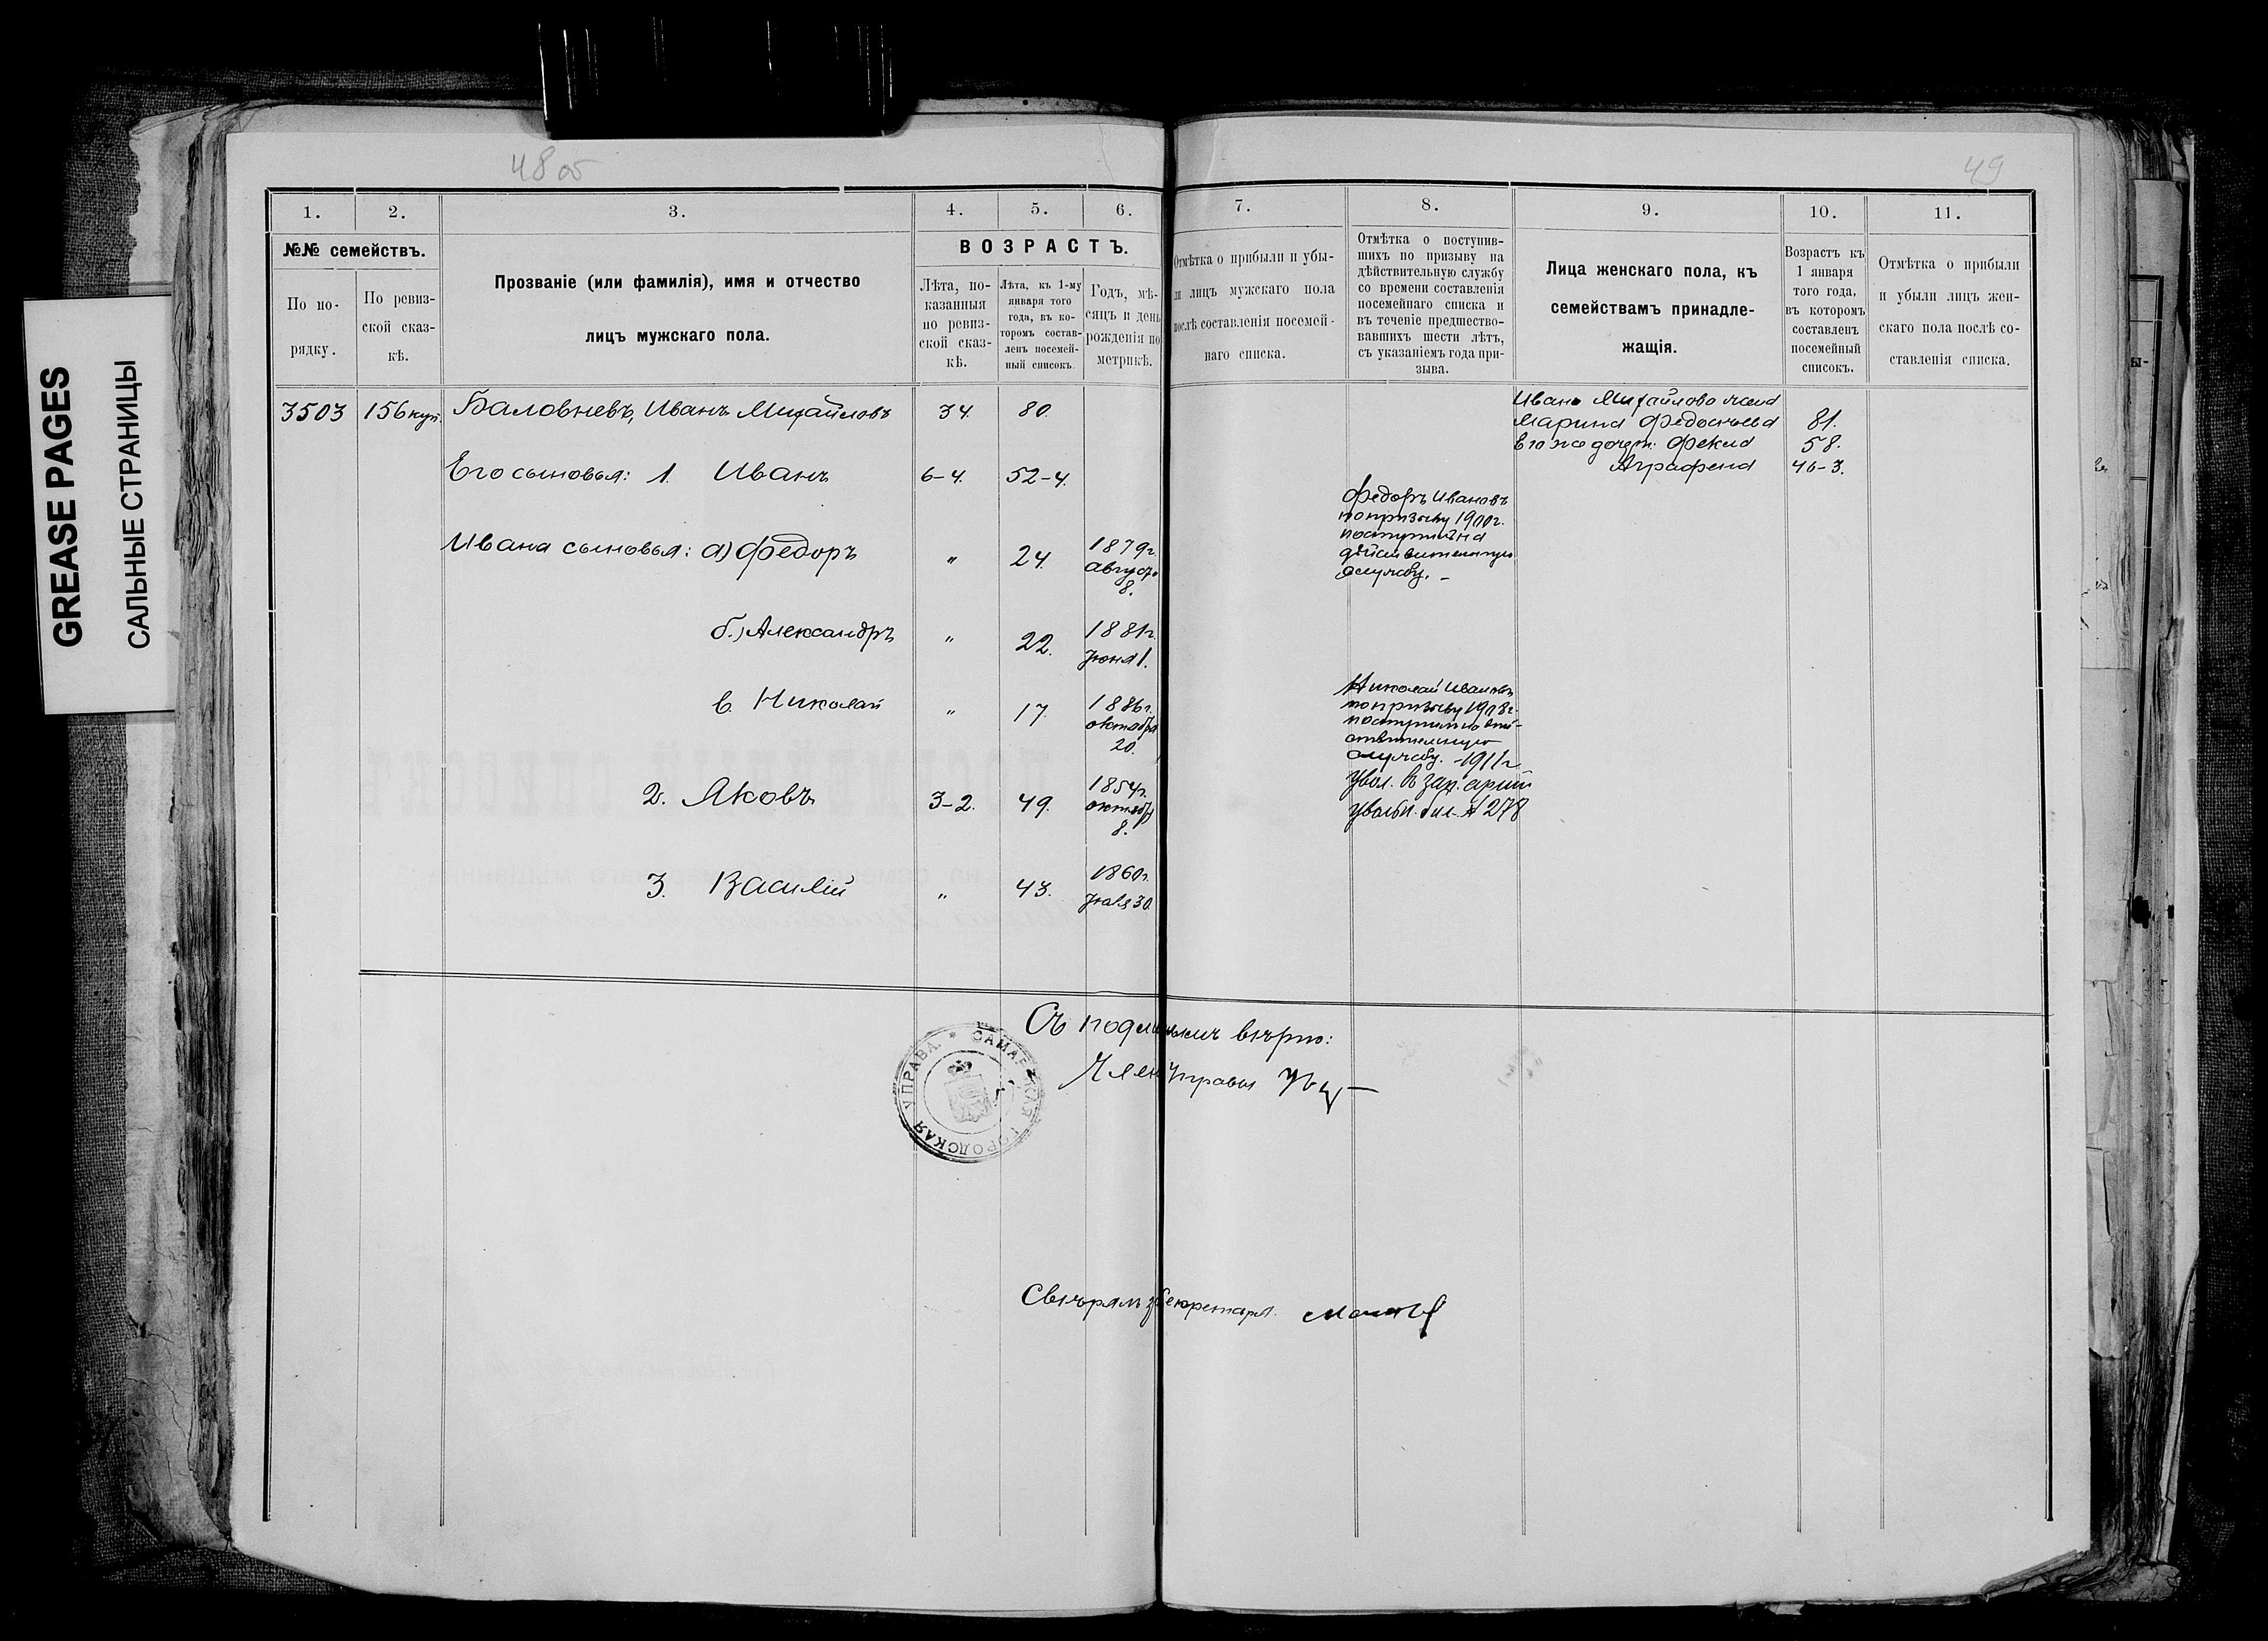 GREASE PAGES
САЛЬНЫЕ СТРАНИЦЫ
48 об
49
1. 2. 3. 4. 5. 6. 7. 8. 9. 10. 11.
№№ семействъ.
По по-
рядку.
По ревиз-
ской сказ-
кѣ.
Прозваніе (или фамилія), имя и отчество
лицъ мужскаго пола.
ВОЗРАСТЪ.
Лѣта, по-
казанныя
по ревиз-
ской сказ-
кѣ.
Лѣта, къ 1-му
января того
года, въ ко-
торомъ состав-
ленъ посемей-
ный списокъ.
Годъ, мѣ-
сяцъ и день
рожденія по
метрикѣ.
Отмѣтка о прибыли и убы-
ли лицъ мужскаго пола
послѣ составленія посемей-
наго списка.
Отмѣтка о поступив-
шихъ по призыву на
дѣйствительную службу
со времени составленія
посемейнаго списка и
въ теченіе предшество-
вавшихъ шести лѣтъ,
съ указаніемъ года при-
зыва.
Лица женскаго пола, къ
семействамъ принадле-
жащія.
Возрастъ къ
1 января
того года,
въ которомъ
составленъ
посемейный
списокъ.
Отмѣтка о прибыли
и убыли лицъ жен-
скаго пола послѣ со-
ставленія списка.
3503 156 куп. Баловневъ, Иванъ Михайловъ 34 80.
Ивана Михайлова жена
Марина Федосѣева 81.
Его же дочери: Фекла 58.
Аграфена 46-3.
Его сыновья: 1. Иванъ 6-4. 52-4.
Ивана сыновья: а) Федоръ " 24. 1879г.
августа
8.
Федоръ Ивановъ
по призыву 1900г.
поступилъ на
дѣйствительную
службу. –
б.) Александръ " 22. 1881г.
Іюня 1.
в. Николай " 17. 1886г.
октября
20.
Николай Ивановъ
по призыву 1908г.
поступилъ на дѣй-
ствительную
службу. – 1911г
Увол. въ зап. арміи
Увольн. бил. № 278
2. Яковъ 3-2. 49. 1854г.
октября
8.
3. Василій " 43. 1860г.
Іюля 30.
Съ подлиннымъ вѣрно:
Членъ Управы
САМАРСКАЯ ГОРОДСКАЯ УПРАВА.
Свѣрялъ Секретаря.